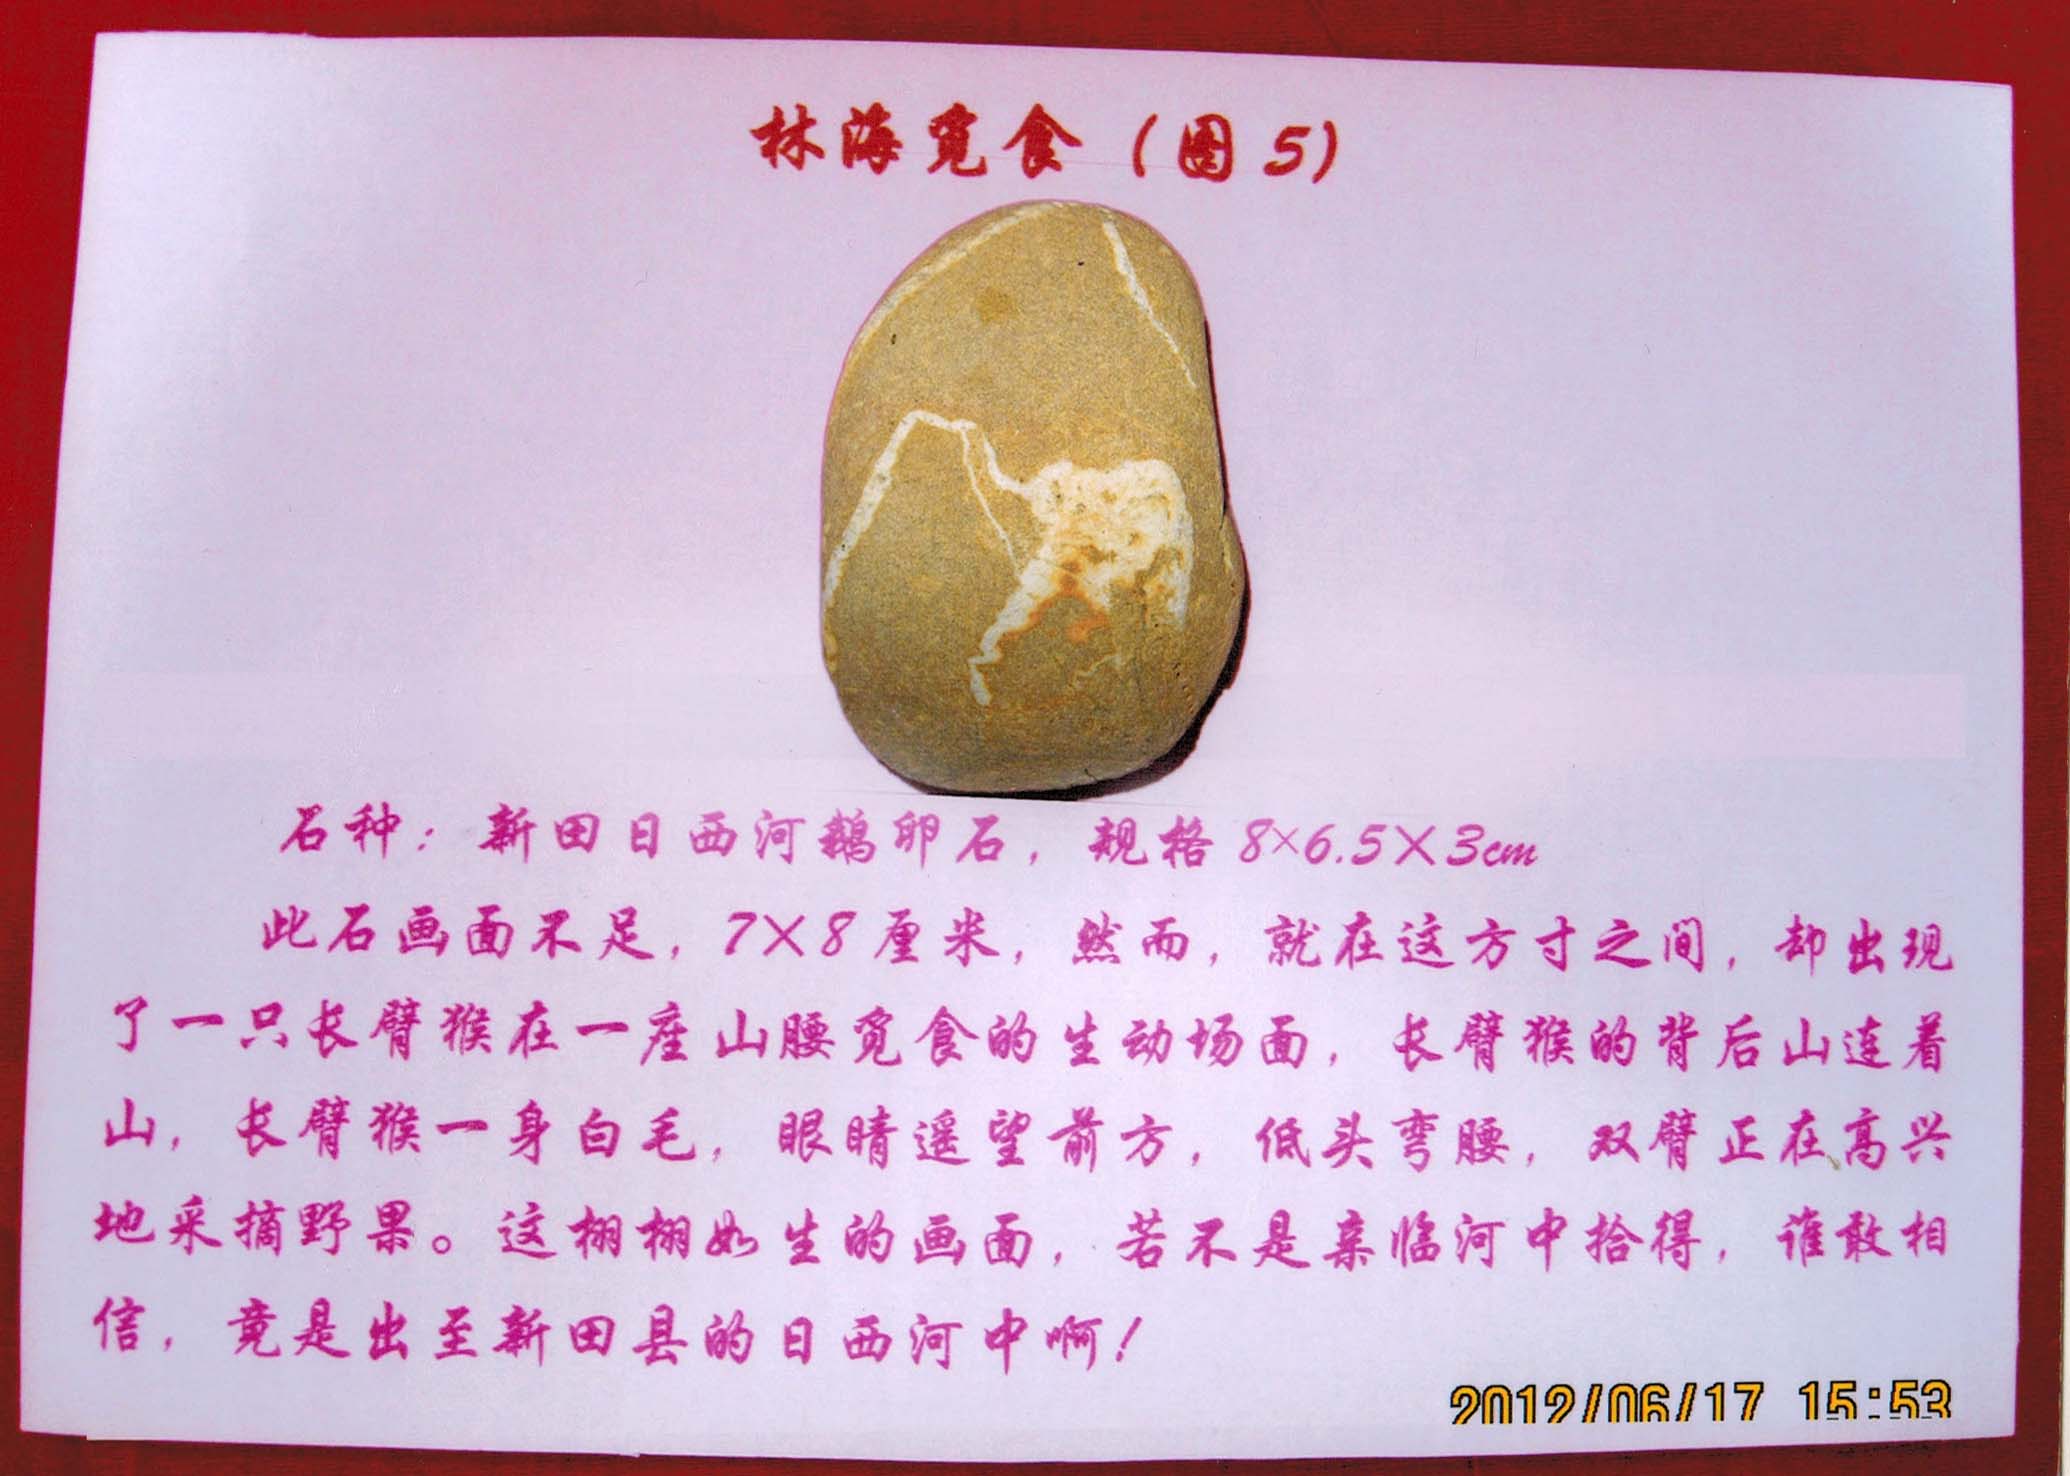 林海觅食（图5）
石种：新田日西河鹅卵石，规格8×6.5×3cm
此石画面不足，7×8厘米，然而，就在这方寸之间，却出现
了一只长臂猴在一座山腰觅食的生动场面，长臂猴的背后山连着
山，长臂猴一身白毛，眼睛遥望前方，低头弯腰，双臂正在高兴
地采摘野果。这栩栩如生的画面，若不是亲临河中拾得，谁敢相
信，竟是出至新田县的日西河中啊！
2012/06/17 15:53